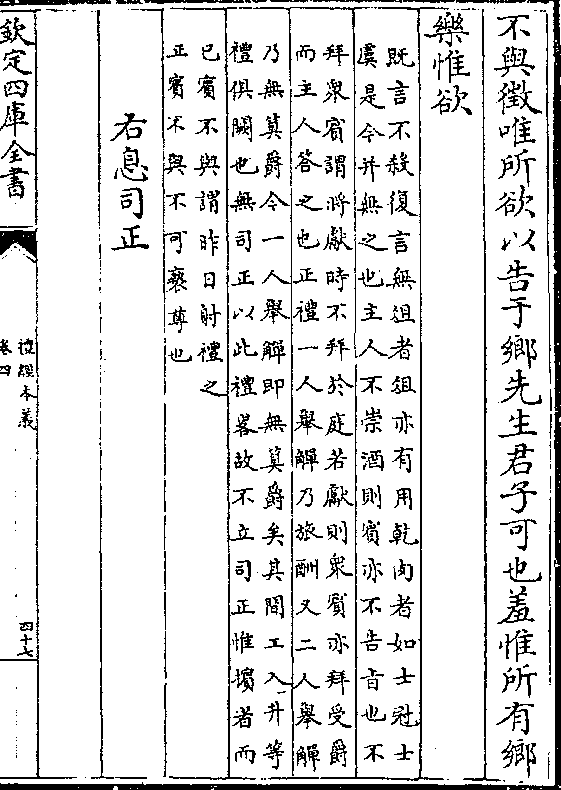 不與徵唯所欲以告于鄉先生君子可也羞惟所有鄉
樂惟欲
既言不殺復言無俎者俎亦有用乾肉者如士冠士
虞是今并無之也主人不崇酒則賓亦不告旨也不
拜衆賓謂將獻時不拜於庭若獻則衆賓亦拜受爵
而主人答之也正禮一人舉觶乃旅酬又二人舉觶
乃無奠爵今一人舉觶即無奠爵矣其間工入升等
禮俱闕也無司正以此禮畧故不立司正惟擯者而
已賓不與謂昨日射禮之
正賓不與不可褻尊也
右息司正
欽定四庫全書
禮經本義
卷四
四十七